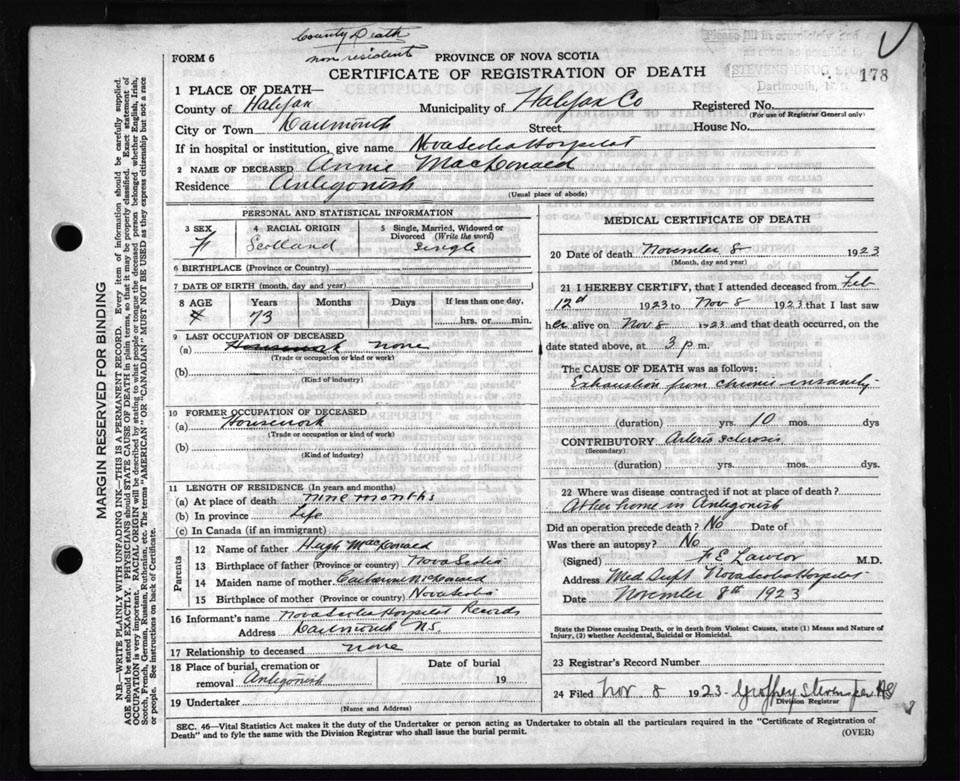 County Death
non resident
FORM 6
PROVINCE OF NOVA SCOTIA
CERTIFICATE OF REGISTRATION OF DEATH
178
Please fill in completely and
as soon as possible to
STEVENS DRUG STORE
Dartmouth, N. S.
1 PLACE OF DEATH—
County of Halifax Municipality of Halifax Co Registered No.
(For use of Registrar General only)
City or Town Dartmouth Street House No.
If in hospital or institution, give name Nova Scotia Hospital
2 NAME OF DECEASED Annie MacDonald
Residence Antigonish
(Usual place of abode)
PERSONAL AND STATISTICAL INFORMATION
3 SEX 4 RACIAL ORIGIN 5 Single, Married, Widowed or
Divorced (Write the word)
F Scotland Single
6 BIRTHPLACE (Province or Country)
7 DATE OF BIRTH (month, day and year)
8 AGE Years Months Days If less than one day,
73 hrs. or min.
9 LAST OCCUPATION OF DECEASED
(a) Housework none
(Trade or occupation or kind or work)
(b)
(Kind of industry)
10 FORMER OCCUPATION OF DECEASED
(a) Housework
(Trade or occupation or kind of work)
(b)
(Kind of industry)
11 LENGTH OF RESIDENCE (In years and months)
(a) At place of death nine months
(b) In province Life
(c) In Canada (if an immigrant)
Parents
12 Name of father Hugh MacDonald
13 Birthplace of father (Province or country) Nova Scotia
14 Maiden name of mother Catherine McDonald
15 Birthplace of mother (Province or country) Nova Scotia
16 Informant's name Nova Scotia Hospital Records
Address Dartmouth N.S.
17 Relationship to deceased none
18 Place of burial, cremation or Date of burial
removal Antigonish 19
19 Undertaker
(Name and Address)
MEDICAL CERTIFICATE OF DEATH
20 Date of death November 8 1923
(Month, day and year)
21 I HEREBY CERTIFY, that I attended deceased from Feb
12th 1923 to Nov 8 1923 that I last saw
her alive on Nov 8 1923 and that death occurred, on the
date stated above, at 3 p.m.
The CAUSE OF DEATH was as follows:
Exhaustion from chronic insanity
(duration) yrs. 10 mos. dys
CONTRIBUTORY Arterio sclerosis
(Secondary)
(duration) yrs. mos. dys.
22 Where was disease contracted if not at place of death?
At her home in Antigonish
Did an operation precede death? No Date of
Was there an autopsy? No
(Signed) F E Lawlor M.D.
Address Med Supt Nova Scotia Hospital
Date November 8th 1923
State the Disease causing Death, or in death from Violent Causes, state (1) Means and Nature of
Injury, (2) whether Accidental, Suicidal or Homicidal.
23 Registrar's Record Number
24 Filed Nov. 8 1923
Division Registrar
SEC. 46—Vital Statistics Act makes it the duty of the Undertaker or person acting as Undertaker to obtain all the particulars required in the "Certificate of Registration of
Death" and to fyle the same with the Division Registrar who shall issue the burial permit. (OVER)
MARGIN RESERVED FOR BINDING
N.B.—WRITE PLAINLY WITH UNFADING INK—THIS IS A PERMANENT RECORD. Every item of information should be carefully supplied.
AGE should be stated EXACTLY. PHYSICIANS should STATE CAUSE OF DEATH in plain terms, so that it may be properly classified. Exact statement of
OCCUPATION is very important. RACIAL ORIGIN will be described by stating to what people or tongue the deceased person belonged whether English, Irish,
Scotch, French, German, Russian, Ruthenian, etc. The terms "AMERICAN" OR "CANADIAN" MUST NOT BE USED as they express citizenship but not a race
or people. See instructions on back of Certificate.